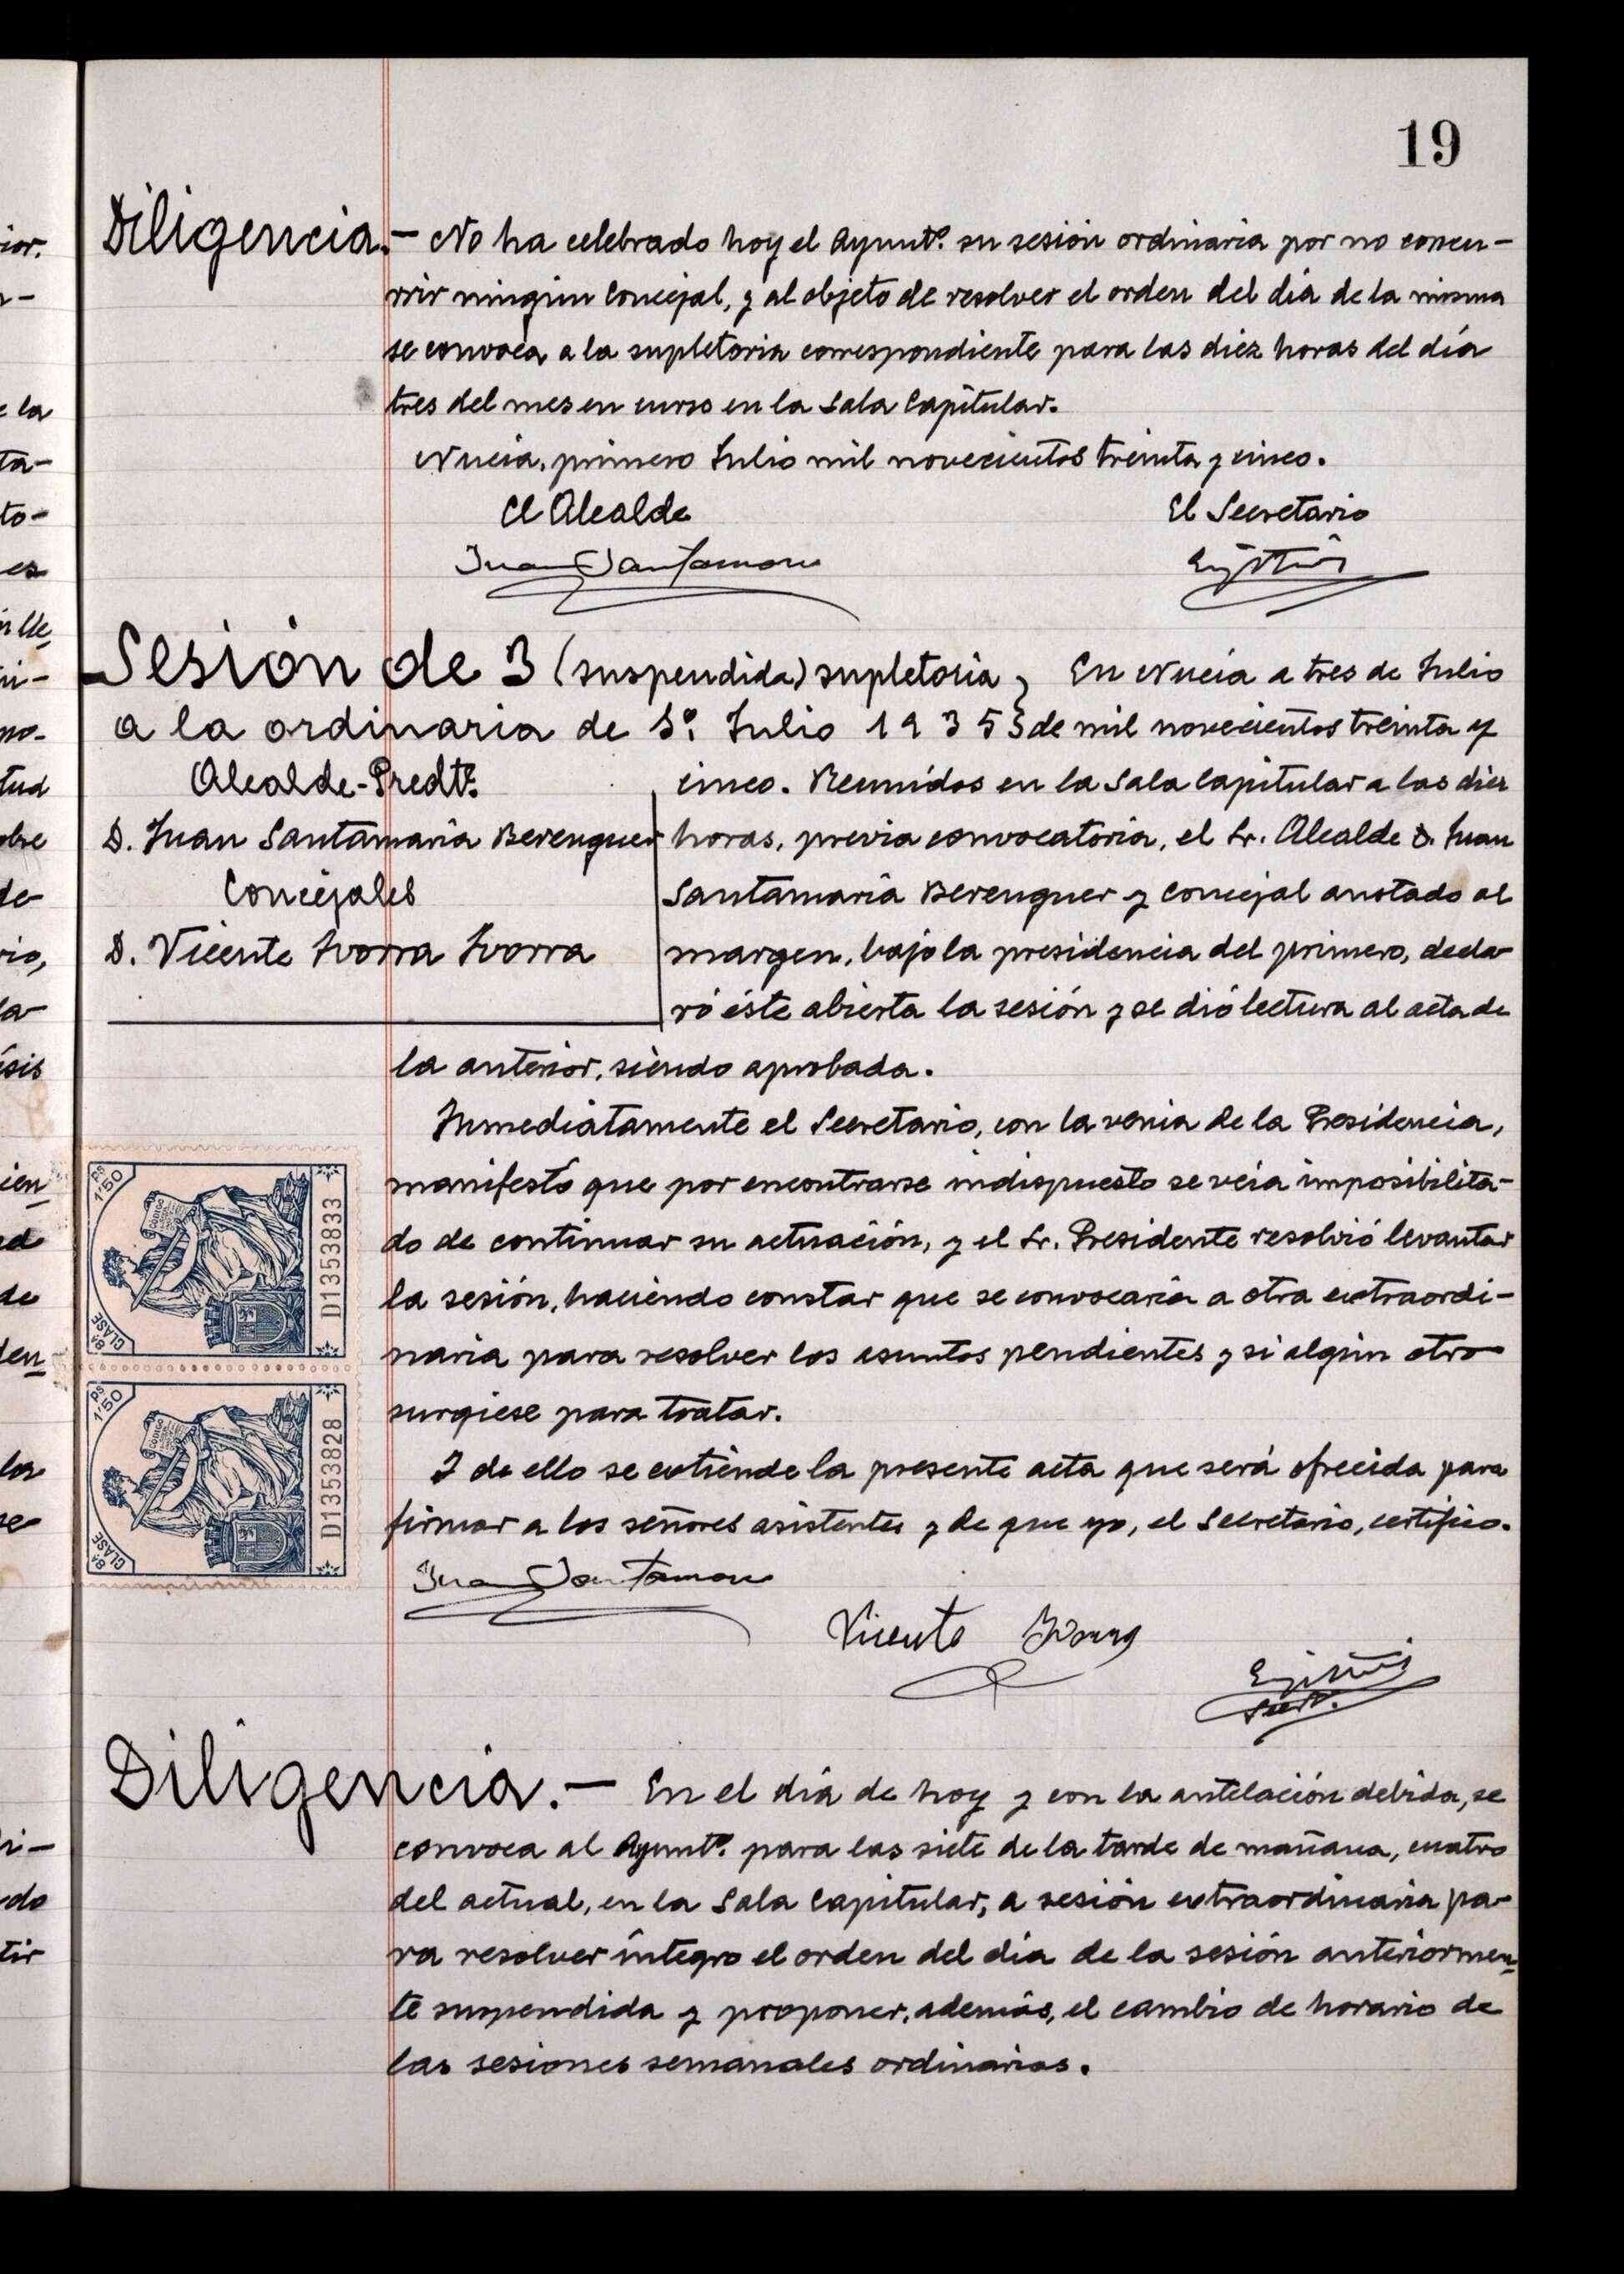 19
Diligencia.- No ha celebrado hoy el Ayuntº. su sesión ordinaria por no concu-
rrir ningún Concejal, y al objeto de resolver el orden del día de la misma
se convoca a la supletoria correspondiente para las diez horas del día
tres del mes en curso en la Sala Capitular.
Nucía, primero Julio mil novecientos treinta y cinco.
El Alcalde
El Secretario
Juan Santamaria
Sesión de 3 (suspendida) supletoria
a la ordinaria de 1º. Julio 1935
Alcalde-Predtº.
D. Juan Santamaría Berenguer
Concejales
D. Vicente Ivorra Ivorra
En Nucía a tres de Julio
de mil novecientos treinta y
cinco. Reunidos en la Sala Capitular a las diez
horas, previa convocatoria, el Sr. Alcalde D. Juan
Santamaría Berenguer y Concejal anotado al
margen, bajo la presidencia del primero, decla-
ró éste abierta la sesión y se dió lectura al acta de
la anterior, siendo aprobada.
Inmediatamente el Secretario, con la venia de la Presidencia,
manifestó que por encontrarse indispuesto se veía imposibilita-
do de continuar su actuación, y el Sr. Presidente resolvió levantar
la sesión, haciendo constar que se convocaría a otra extraordi-
naria para resolver los asuntos pendientes y si algún otro
surgiese para tratar.
Y de ello se extiende la presente acta que será ofrecida para
firmar a los señores asistentes y de que yo, el Secretario, certifico.
Juan Santamaria
Vicente Ivorra
Sectº.
PS 1'50
8ª CLASE
D1353833
PS 1'50
8ª CLASE
D1353828
Diligencia.- En el día de hoy y con la antelación debida, se
convoca al Ayuntº. para las siete de la tarde de mañana, cuatro
del actual, en la Sala Capitular, a sesión extraordinaria pa-
ra resolver íntegro el orden del día de la sesión anteriormen-
te suspendida y proponer, además, el cambio de horario de
las sesiones semanales ordinarias.